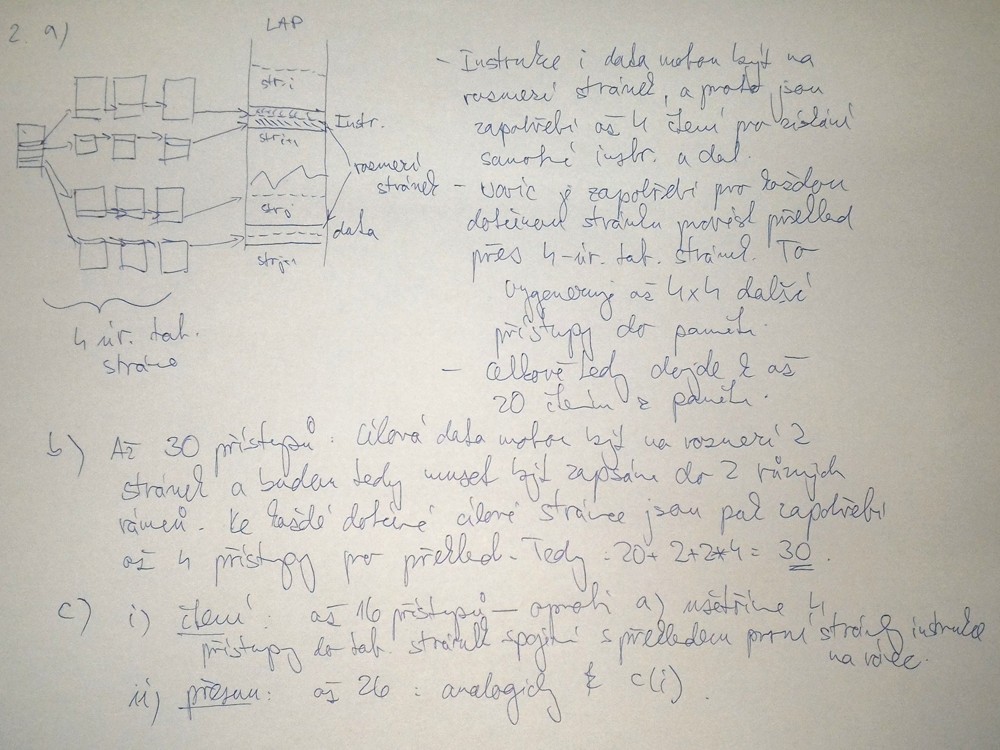 2. a)
LAP
str i
Instr.
str i+1
rozmezí
stránek
str j
data
str j+1
4 úr. tab.
stránek
- Instrukce i data mohou být na
rozmezí stránek, a proto jsou
zapotřebí až 4 čtení pro získání
samotné instr. a dat.
- Navíc je zapotřebí pro každou
dotčenou stránku provést překlad
přes 4-úr. tab. stránek. To
vygeneruje až 4x4 další
přístupy do paměti.
- Celkově tedy dojde k až
20 čtením z paměti.
b) Až 30 přístupů: Cílová data mohou být na rozmezí 2
stránek a budou tedy muset být zapsána do 2 různých
rámců. Ke každé dotčené cílové stránce jsou pak zapotřebí
až 4 přístupy pro překlad. Tedy: 20+2+2*4 = 30.
c) i) čtení: až 16 přístupů – oproti a) ušetříme 4
přístupy do tab. stránek spojené s překladem první stránky instrukce
na
ii) přesun: až 26: analogicky k c(i).